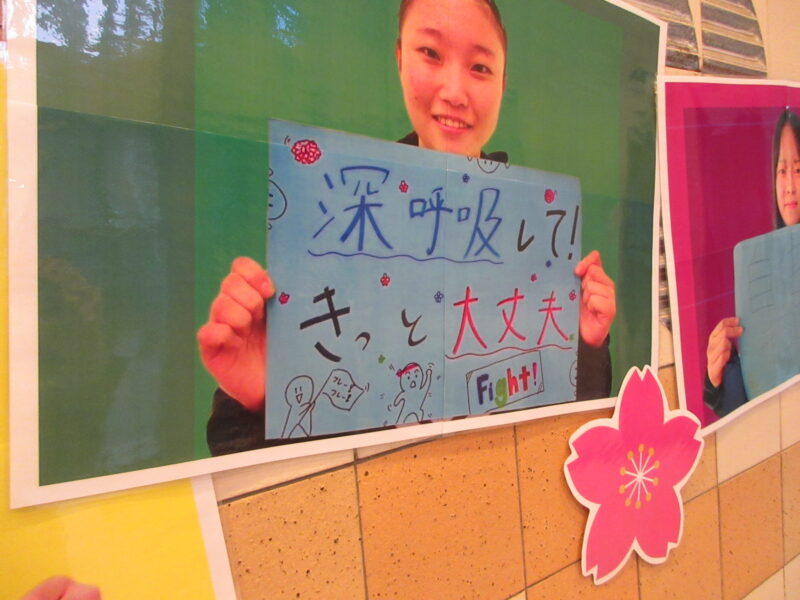 深呼吸して!
きっと大丈夫
フレー!
フレー!
Fight!